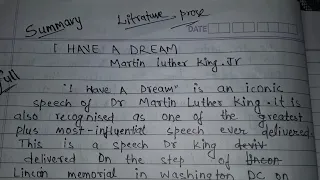 Summary Litrature prose
DATE
I HAVE A DREAM
Martin Luther King.Jr
full
"I Have A Dream" is an iconic
speech of Dr Martin Luther King. It is
also recognised as one of the greatest
plus most-influential speech ever delivered.
This is a speech Dr King deviv
delivered On the step of Lincon
Lincun memorial in Washington DC on